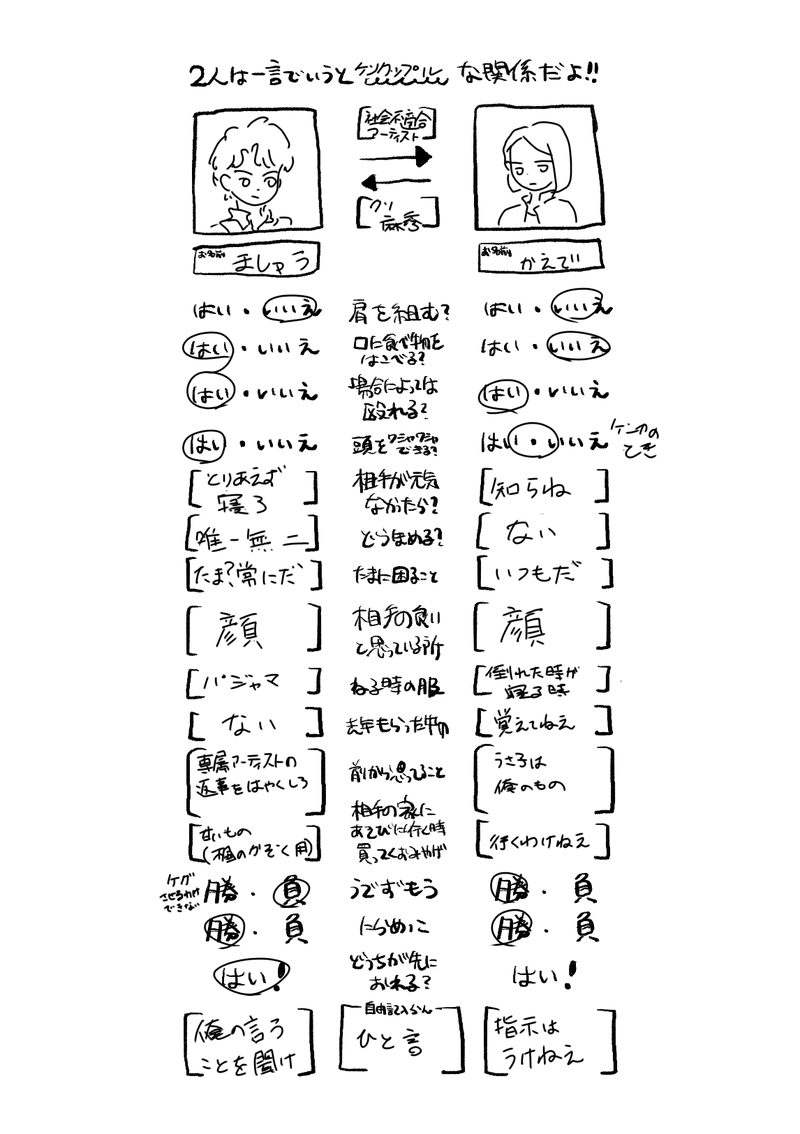 2人は一言でいうとケンカップルな関係だよ!!
社会不適合
アーティスト
クソ
麻秀
お名前 ましゅう
お名前 かえで
はい・いいえ 肩を組む? はい・いいえ
はい・いいえ 口に食べ物を
はこべる? はい・いいえ
はい・いいえ 場合によっては
殴れる? はい・いいえ
はい・いいえ 頭をワシャワシャ
できる? はい・いいえ ケンカの
とき
とりあえず
寝ろ 相手が元気
なかったら? 知らね
唯一無二 どうほめる? ない
たま?常にだ たまに困ること いつもだ
顔 相手の良い
と思っている所 顔
パジャマ ねる時の服 倒れた時が
寝る時
ない 去年もらった中の 覚えてねえ
専属アーティストの
返事をはやくしろ 前から思ってること うさ子は
俺のもの
甘いもの
(楓のかぞく用) 相手の家に
あそびに行く時
買ってくおみやげ 行くわけねえ
ケガ
させるわけ
できない 勝・負 うでずもう 勝・負
勝・負 にらめっこ 勝・負
はい! どっちが先に
おれる? はい!
俺の言う
ことを聞け 自由記入らん
ひと言 指示は
うけねえ